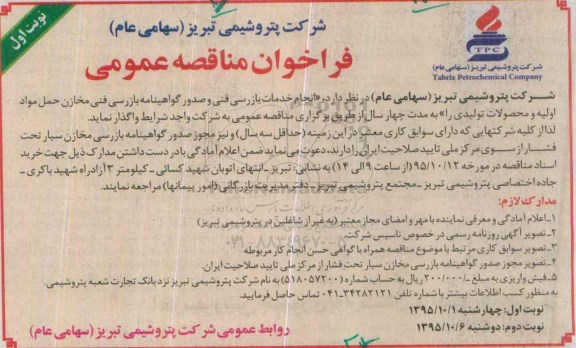 نوبت اول
شرکت پتروشیمی تبریز (سهامی عام)
فراخوان مناقصه عمومی
TPC
شرکت پتروشیمی تبریز (سهامی عام)
Tabriz Petrochemical Company
شرکت پتروشیمی تبریز (سهامی عام) در نظر دارد در «انجام خدمات بازرسی فنی و صدور گواهینامه بازرسی فنی مخازن حمل مواد
اولیه و محصولات تولیدی را» به مدت چهار سال از طریق برگزاری مناقصه عمومی به شرکت واجد شرایط واگذار نماید.
لذا از کلیه شرکتهایی که دارای سوابق کاری معتبر در این زمینه (حداقل سه سال) و نیز مجوز صدور گواهینامه بازرسی مخازن سیار تحت
فشار از سوی مرکز ملی تایید صلاحیت ایران را دارند، دعوت می‌نماید ضمن اعلام آمادگی با در دست داشتن مدارک ذیل جهت خرید
اسناد مناقصه در مورخه ۹۵/۱۰/۱۲ (از ساعت ۹ الی ۱۴) به نشانی: تبریز - انتهای اتوبان شهید کسائی - کیلومتر ۳ آزادراه شهید باکری -
جاده اختصاصی پتروشیمی تبریز - مجتمع پتروشیمی تبریز - دفتر مدیریت بازرگانی (امور پیمانها) مراجعه نمایند.
مدارک لازم:
۱- اعلام آمادگی و معرفی نماینده با مهر و امضای مجاز معتبر (به غیر از شاغلین در پتروشیمی تبریز)
۲- تصویر آگهی روزنامه رسمی در خصوص تاسیس شرکت
۳- تصویر سوابق کاری مرتبط با موضوع مناقصه همراه با گواهی حسن انجام کار مربوطه
۴- تصویر مجوز صدور گواهینامه بازرسی مخازن سیار تحت فشار از مرکز ملی تایید صلاحیت ایران.
۵- فیش واریزی به مبلغ ۲۰۰/۰۰۰/- ریال به حساب شماره (۵۱۸۰۵۷۲۰۰) به نام شرکت پتروشیمی تبریز نزد بانک تجارت شعبه پتروشیمی.
به منظور کسب اطلاعات بیشتر با شماره تلفن ۳۴۲۸۲۱۲۱-۰۴۱ تماس حاصل فرمایید.
نوبت اول: چهارشنبه ۱۳۹۵/۱۰/۱
نوبت دوم: دوشنبه ۱۳۹۵/۱۰/۶
روابط عمومی شرکت پتروشیمی تبریز (سهامی عام)